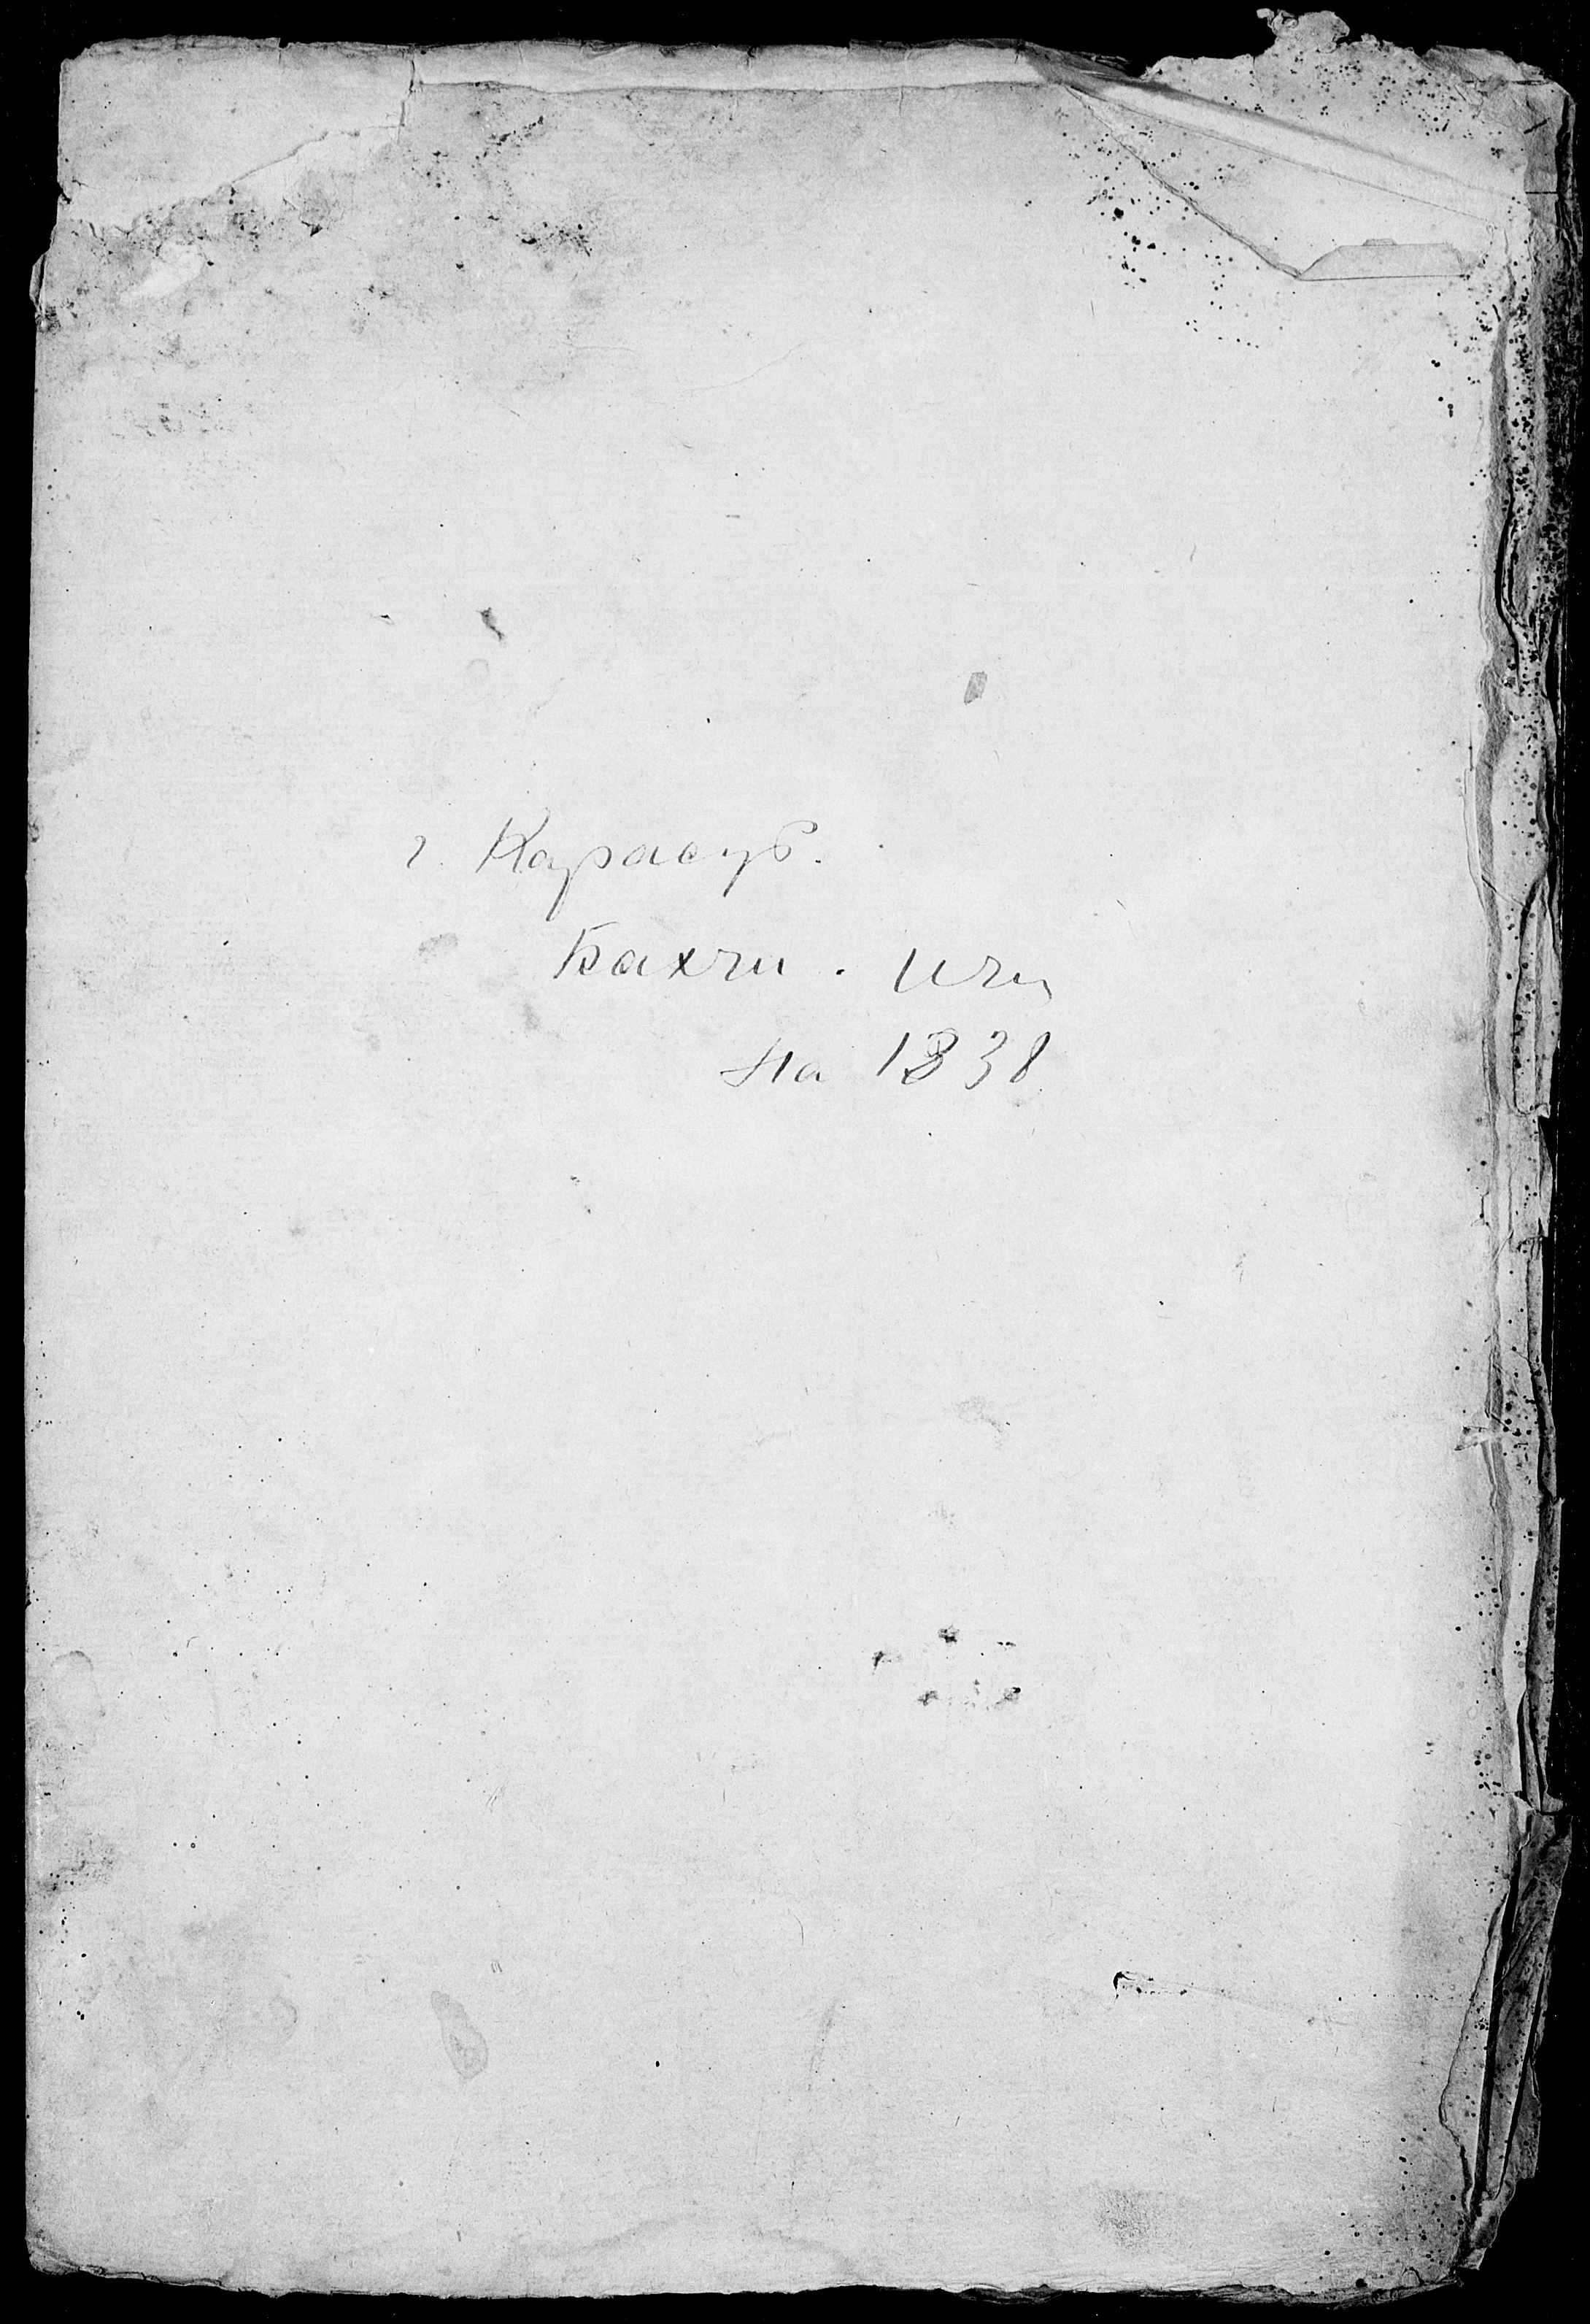 г. Карасуб.
Бахчи. Ичи
на 1838